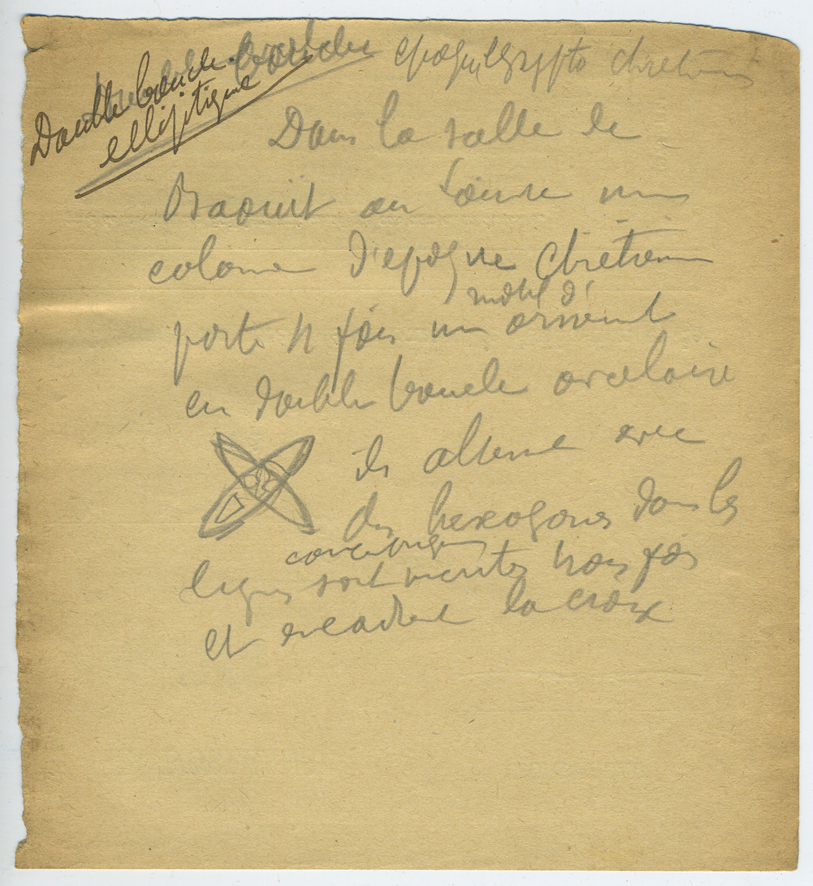 Double boucle elliptique
double boucle époque egypto chretienne
Dans la salle de
Baouit au Louvre une
colonne d'epoque chrétienne
porte 4 fois un motif d'ornement
en double boucle
ils alterne avec
des hexagones dans les
lignes sont trois fois
et encadrent la croix